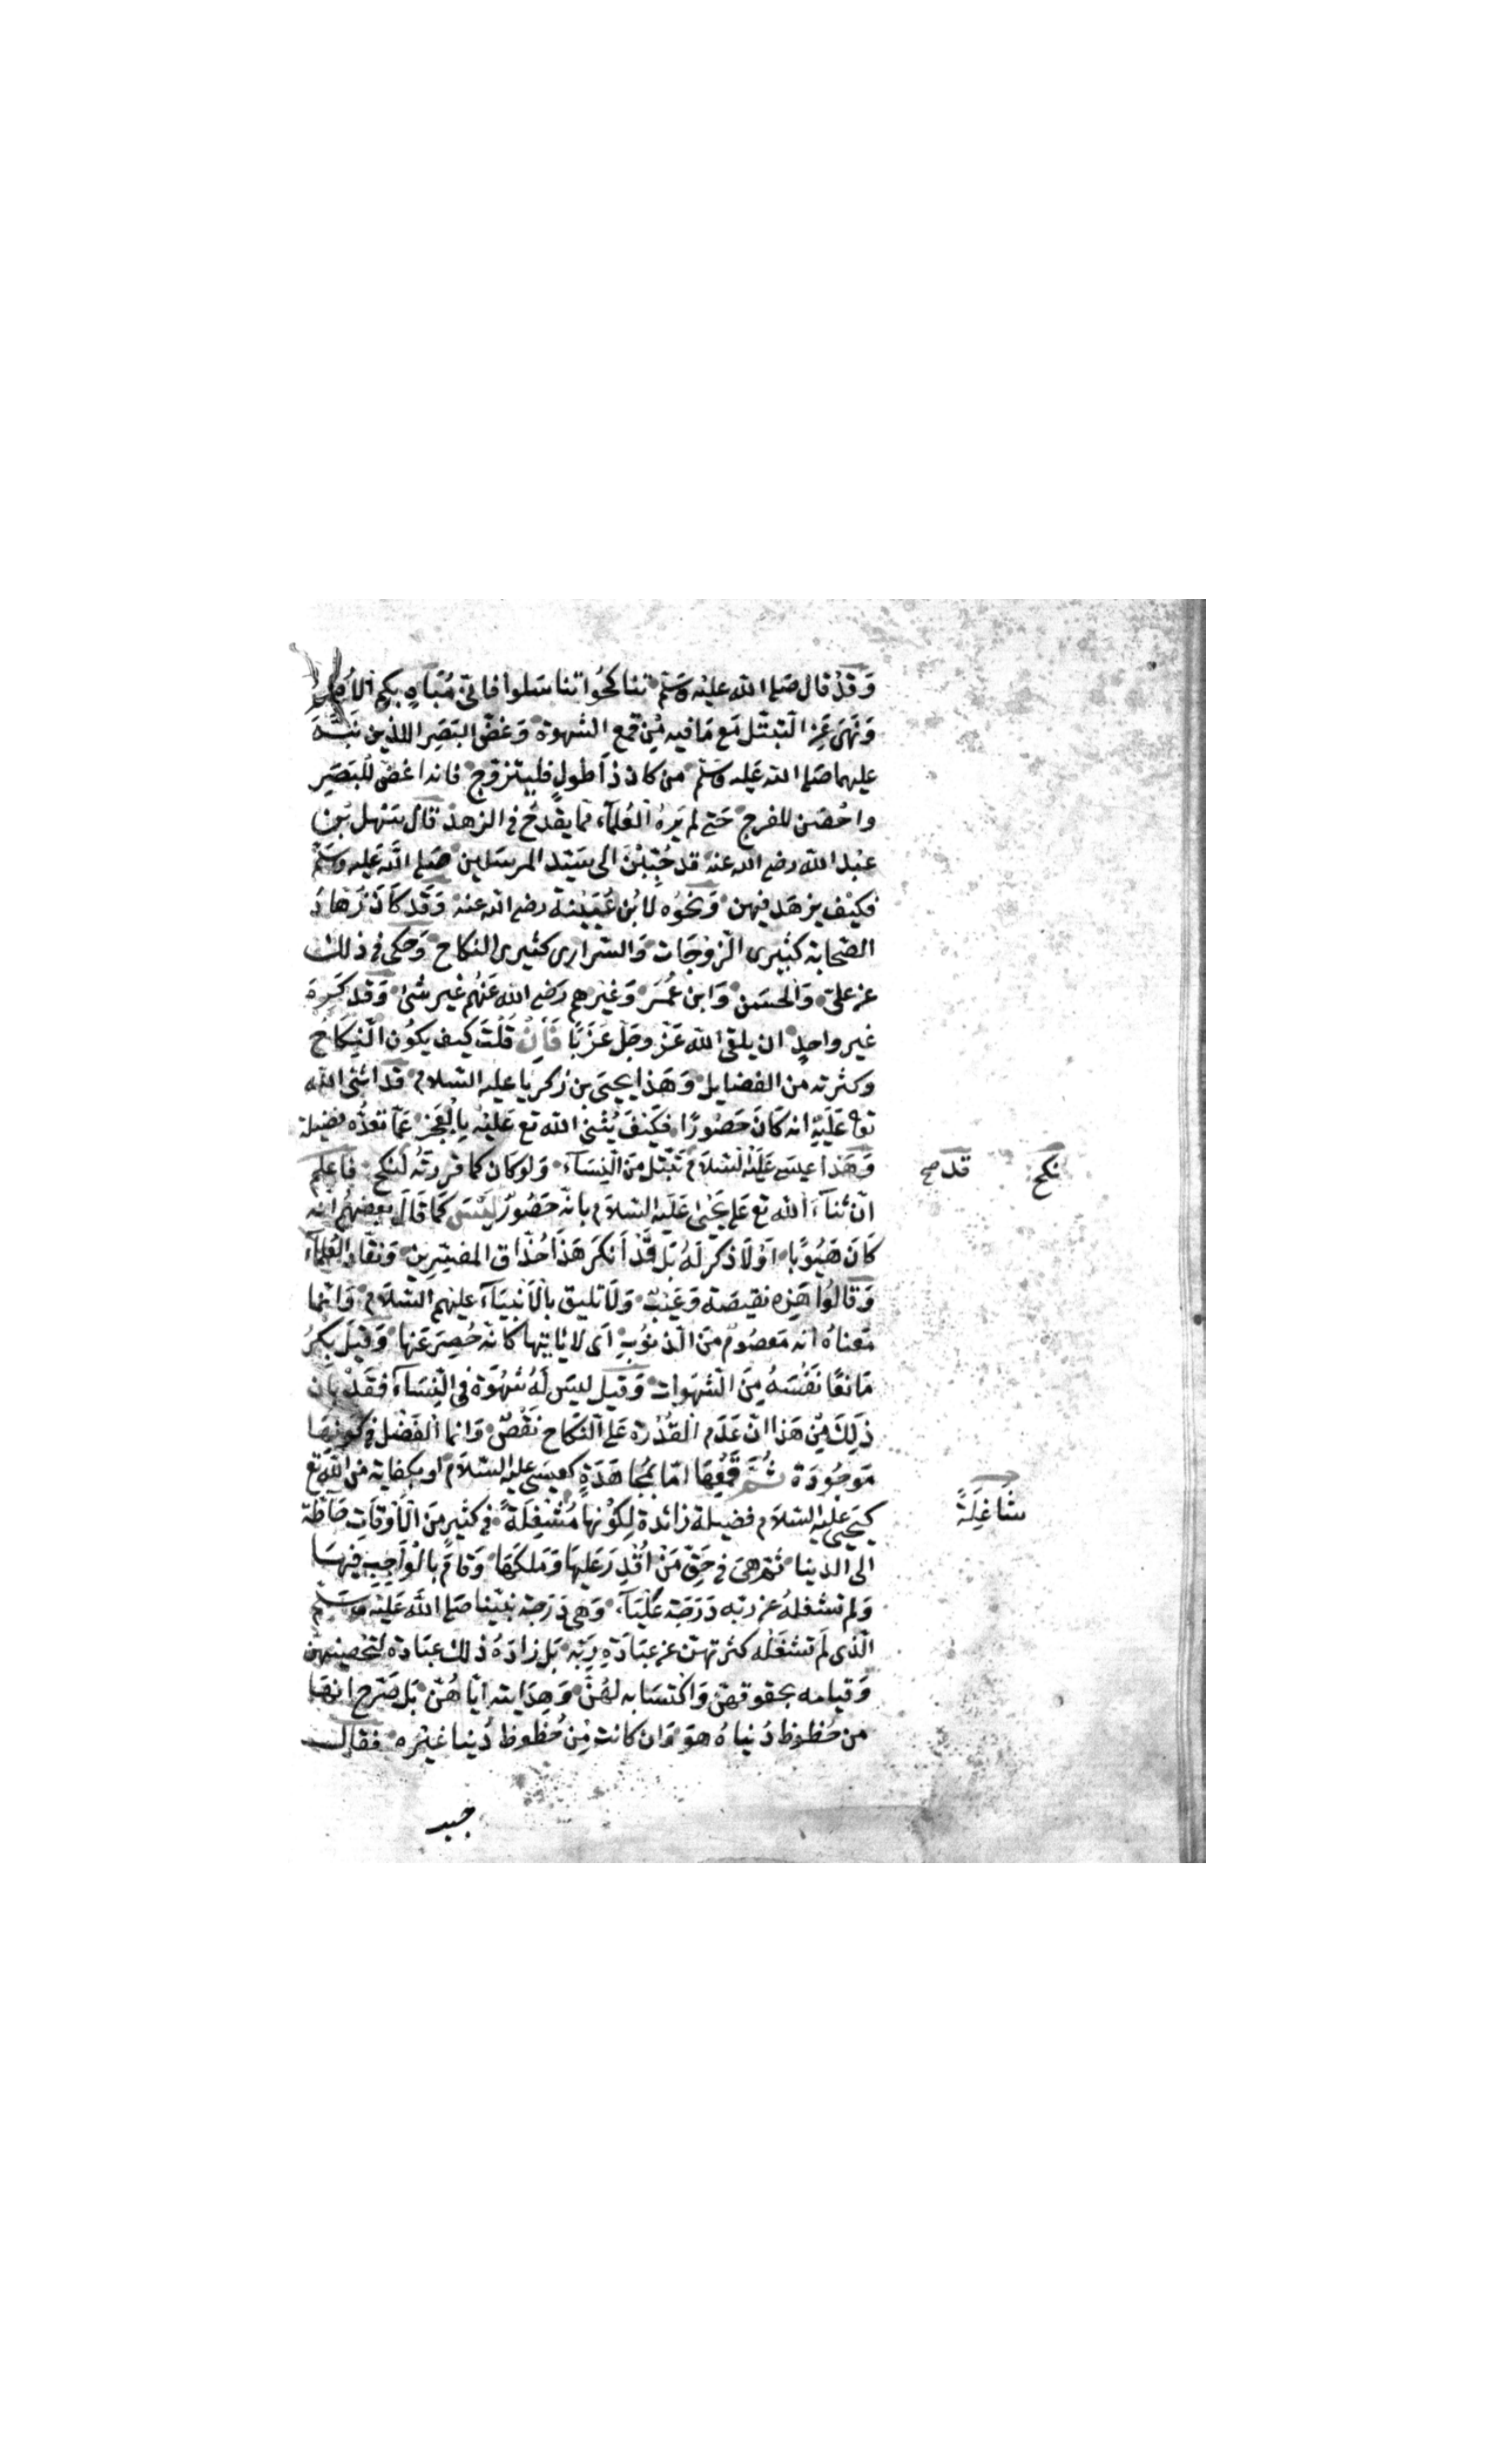 وَقَدْ قَال صَلى الله عليْه وَسَلم تناكحُوا تناسَلوا فانّى مُبَاهٍ بكم الأمم
وَنَهَى عَنِ التبَتّل مَع مَا فيه مِن قمع الشهوة وَغضّ البَصَر اللذين نَبَّهَ
عليهما صَلى الله عَليه وسَلم من كان ذا طولٍ فليتزوّج فانه اغضّ للبَصَر
واحْصَن للفرج حَتى لم يَرهُ العُلمآء مما يقدحُ فى الزهد قال سَهل بْن
عبْد الله رضى الله عنه قد حُبِّبْنَ الى سَيّد المرسَلين صَلى الله عَليه وسَلم
فكيْف يزهَد فيهن وَنحْوُه لابْن عُيَيْنة رضى الله عنه وَقد كَانَ زهادُ
الصّحابة كثيرى الزّوْجَات وَالسّرارى كثيرى النكاح وَحكى فى ذلك
عن علىّ وَالحسَن وَابن عُمَر وَغيرهم رَضى الله عَنهُم غير شئ وَقد كَرِهَ
غير واحدٍ ان يلقى الله عَزّ وجَلّ عَزَبًا فَاِنْ قُلتَ كيف يكوُن النّكَاحُ
وكثرته من الفضايل وَهَذا يحيَى بن زكريا عليه السّلام قد اثنى الله
تع عَلَيْهِ انه كانَ حَصُورًا فكَيْفَ يُثْنى الله تع عَليْه بالعَجْز عَمّا تعدّه فضيلة
وَهَذا عيسَى عَليْه السّلام تبَتّل مِنَ النّسَاء وَلو كان كما قررتَه لنكح فاعلم
انّ ثناءَ الله تع عَلى يَحْيَى عَلَيْه السّلَام بانّه حَصُورٌ ليْسَ كَمَا قَالَ بَعضهُم انّه
كَانَ هَيُوبًا اوْ لَا ذكَر لَهُ بَل قَدْ اَنكَرَ هَذا حُذّاق المفسّرين وَنقّاد العُلمآء
وَقالوُا هَذِه نقيصَة وَعَيْبٌ وَلَا تليق بالاَنبيَآء عليهم السّلَام وَانّما
مَعناهُ انه مَعصُومٌ منَ الذنوُبِ اَى لا يَاتيها كانّه حُصِرَ عَنها وَقيل
مَانعًا نَفْسَهُ مِنَ الشّهوَات وَقيل ليسَ لَهُ شهْوَة فى النّسَآء فقَدْ بَان
ذلِكَ مِنْ هَذا انّ عَدَم القُدْرَة عَلى النّكَاح نَقْصٌ وَانما الفَضْل فى كونهَا
مَوجُودَة ثُمَّ قَمْعِهَا امّا بمُجاهَدَةٍ كعيسَى عليْه السّلَام او بكفاية من الله تع
كيَحْيَى عليْه السّلَام فضيلة زائدة لِكَوْنها مُشْغِلَةً فى كثيرٍ مِنَ الاَوْقاَتِ حَاطّة
الى الدّنيا ثمّ هىَ فى حَقّ مَنْ اُقْدِرَ عَليهَا وَمَلَكهَا وَقامَ بالوَاجِب فيهَا
وَلم تشغلهُ عن ربّه دَرَجَة عَلْيَآء وَهى دَرَجَة نبيّنا صَلى الله عَليْه وَسَلم
الّذى لَم تَشغَلْه كثرتهنّ عن عبَادَةِ رَبّه بَل زادَهُ ذلك عبَادة لتحصينهنّ
وَقيامه بحقوقهنّ وَاكتسَابه لهُنّ وَهِدَايته ايّاهُنّ بَل صَرّح انهَا
من حُظوظ دُنياهُ هوَ وَان كانت مِن حُظوظ دُنيا غيْره فقال
حبب
نكح
قد صح
شَاغِلَةً